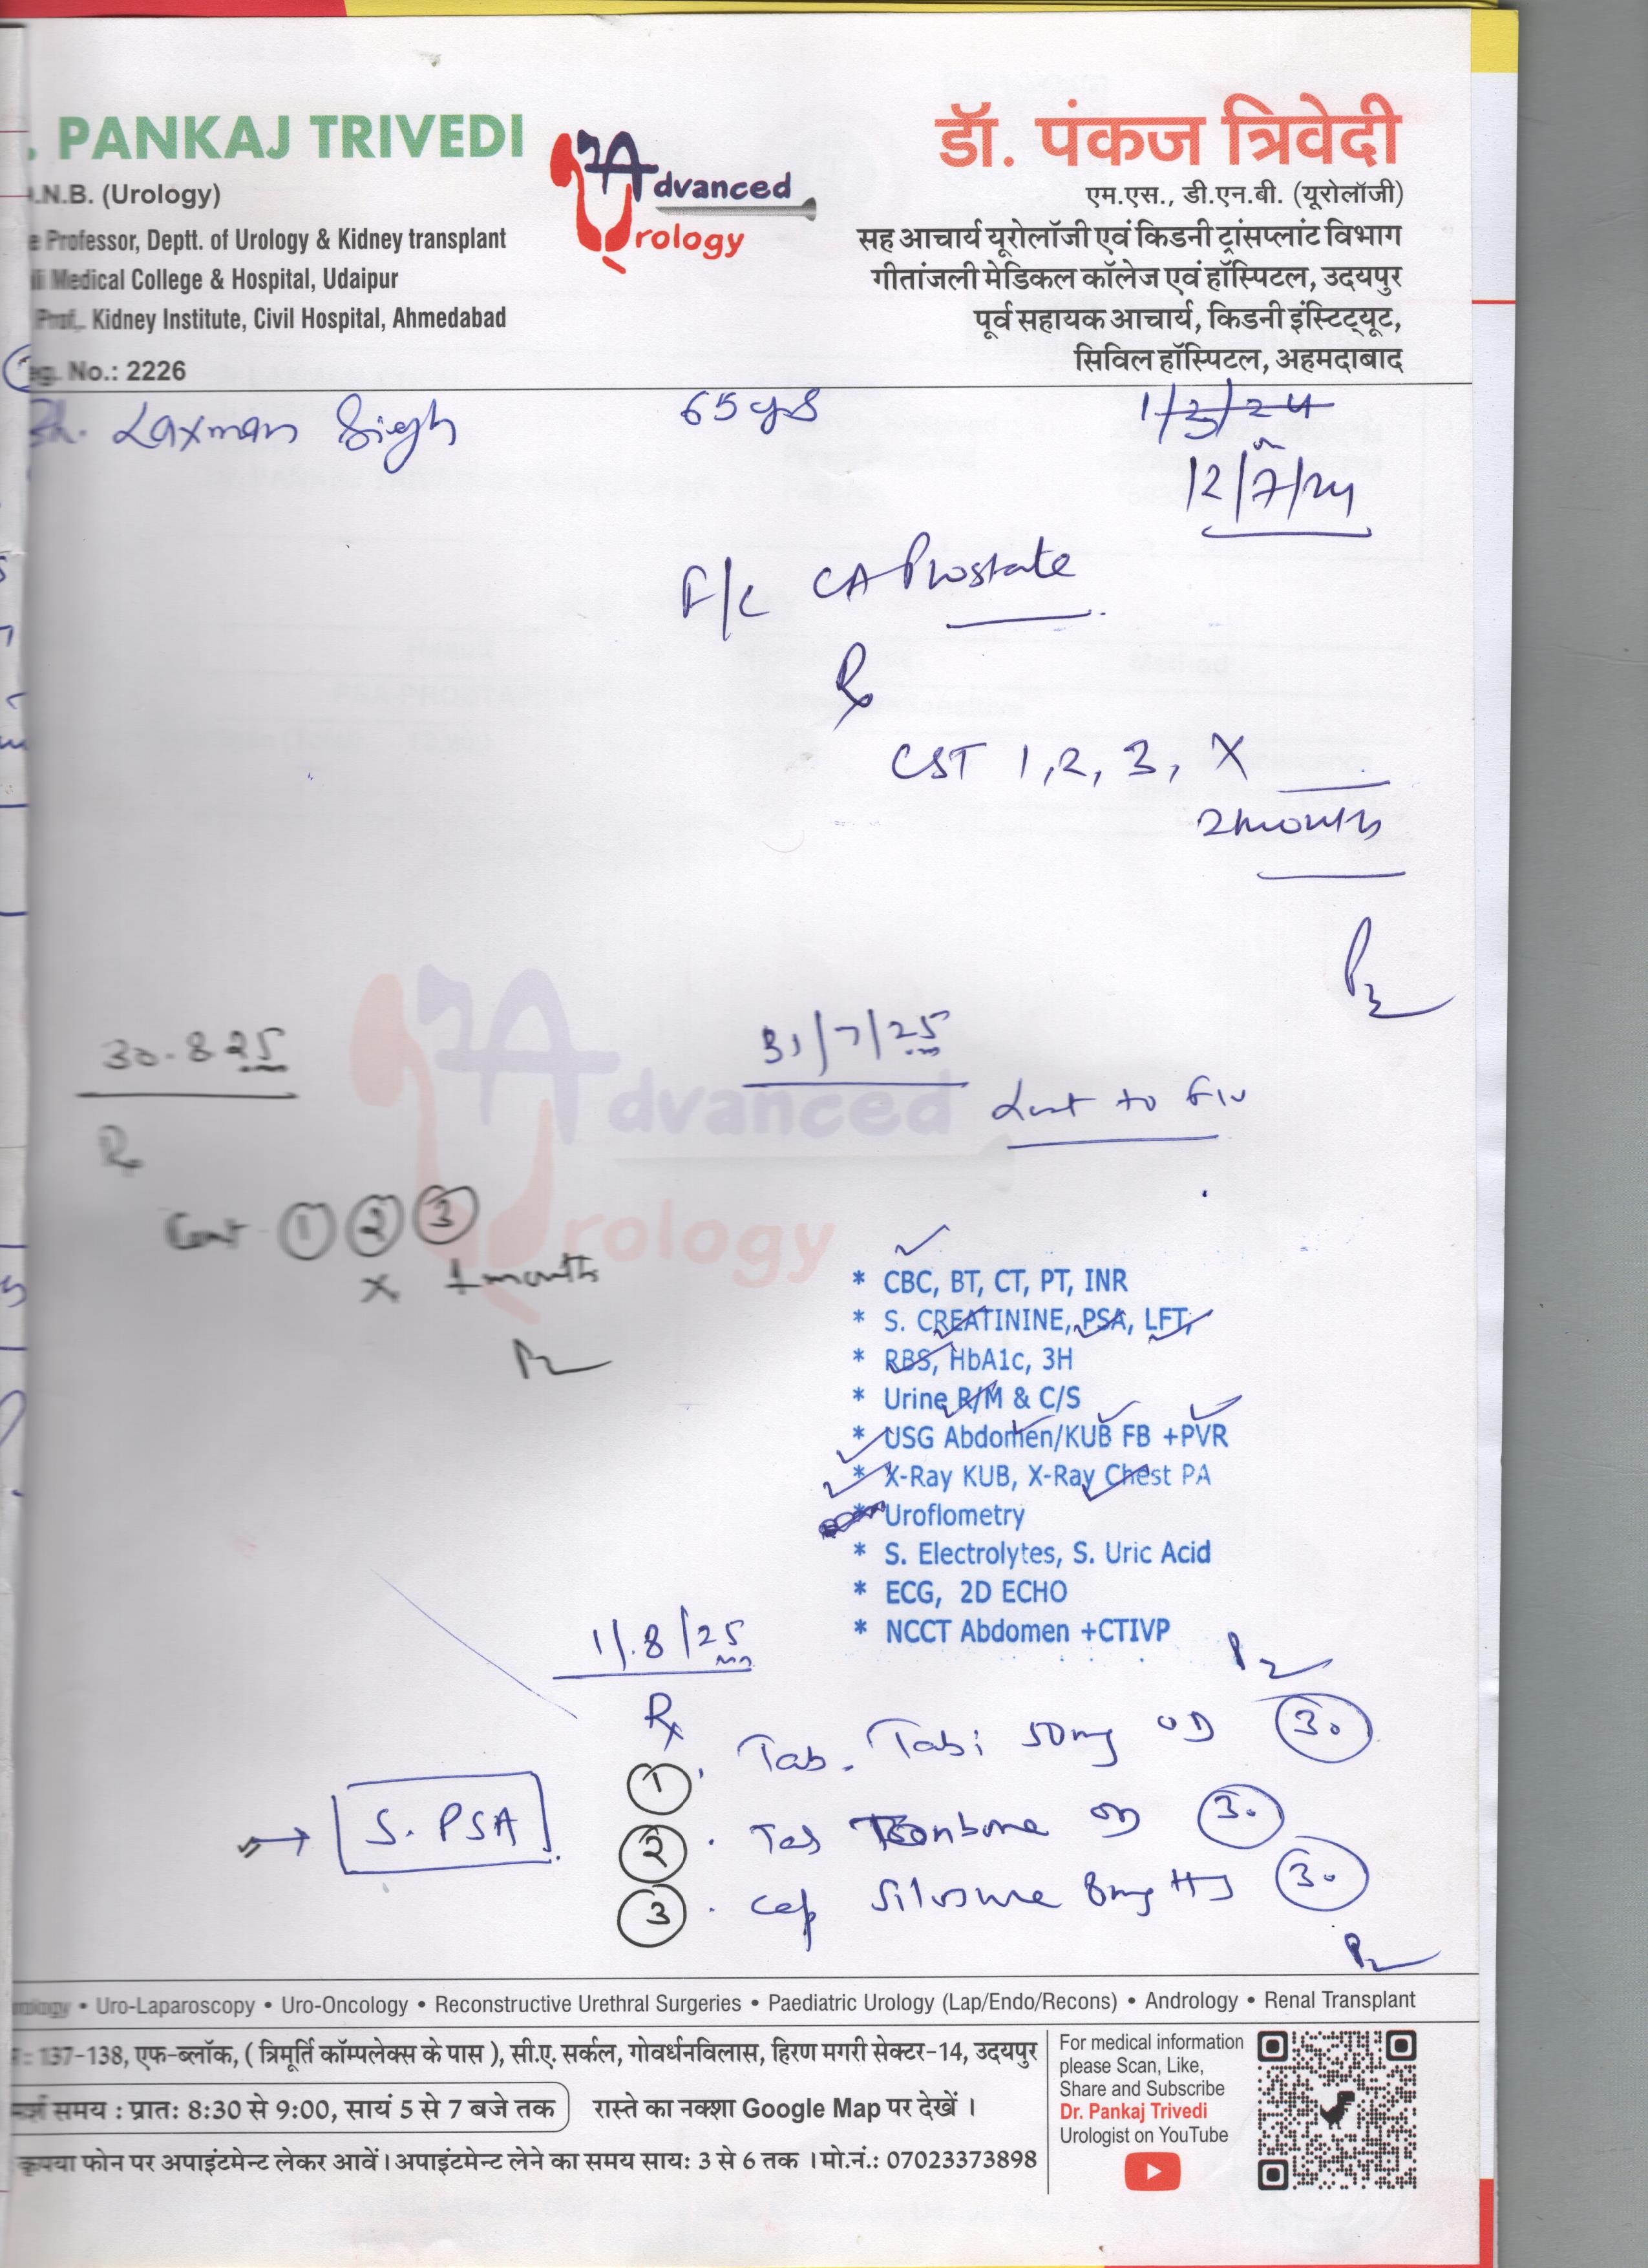 . PANKAJ TRIVEDI
.N.B. (Urology)
e Professor, Deptt. of Urology & Kidney transplant
li Medical College & Hospital, Udaipur
Prof,. Kidney Institute, Civil Hospital, Ahmedabad
eg. No.: 2226
Advanced
Urology
डॉ. पंकज त्रिवेदी
एम.एस., डी.एन.बी. (यूरोलॉजी)
सह आचार्य यूरोलॉजी एवं किडनी ट्रांसप्लांट विभाग
गीतांजली मेडिकल कॉलेज एवं हॉस्पिटल, उदयपुर
पूर्व सहायक आचार्य, किडनी इंस्टिट्यूट,
सिविल हॉस्पिटल, अहमदाबाद
Sh. Laxman Singh 65 yrs 1/3/24
12/7/24
CA Prostate
Rx
CST 1, 2, 3, X
2 months
31/7/25
Lost to F/U
30.8.25
Rx
Cont 1 2 3
x months
Advanced
Urology
* CBC, BT, CT, PT, INR
* S. CREATININE, PSA, LFT,
* RBS, HbA1c, 3H
* Urine R/M & C/S
* USG Abdomen/KUB FB +PVR
* X-Ray KUB, X-Ray Chest PA
* Uroflometry
* S. Electrolytes, S. Uric Acid
* ECG, 2D ECHO
* NCCT Abdomen +CTIVP
1/.8/25
Rx
1. Tab. Tabi 50mg OD 30
S. PSA
2. Tab OD 30
3. Cap 8mg HS 30
ology • Uro-Laparoscopy • Uro-Oncology • Reconstructive Urethral Surgeries • Paediatric Urology (Lap/Endo/Recons) • Andrology • Renal Transplant
: 137-138, एफ-ब्लॉक, ( त्रिमूर्ति कॉम्पलेक्स के पास ), सी.ए. सर्कल, गोवर्धनविलास, हिरण मगरी सेक्टर-14, उदयपुर
समय : प्रातः 8:30 से 9:00, सायं 5 से 7 बजे तक रास्ते का नक्शा Google Map पर देखें ।
कृपया फोन पर अपाइंटमेन्ट लेकर आवें। अपाइंटमेन्ट लेने का समय सायः 3 से 6 तक । मो.नं.: 07023373898
For medical information
please Scan, Like,
Share and Subscribe
Dr. Pankaj Trivedi
Urologist on YouTube